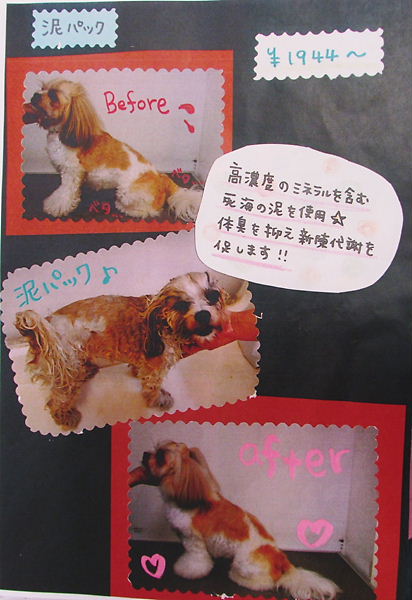 泥パック
¥1944〜
Before
ベタ
ベタ
高濃度のミネラルを含む
死海の泥を使用☆
体臭を抑え新陳代謝を
促します!!
泥パック♪
after